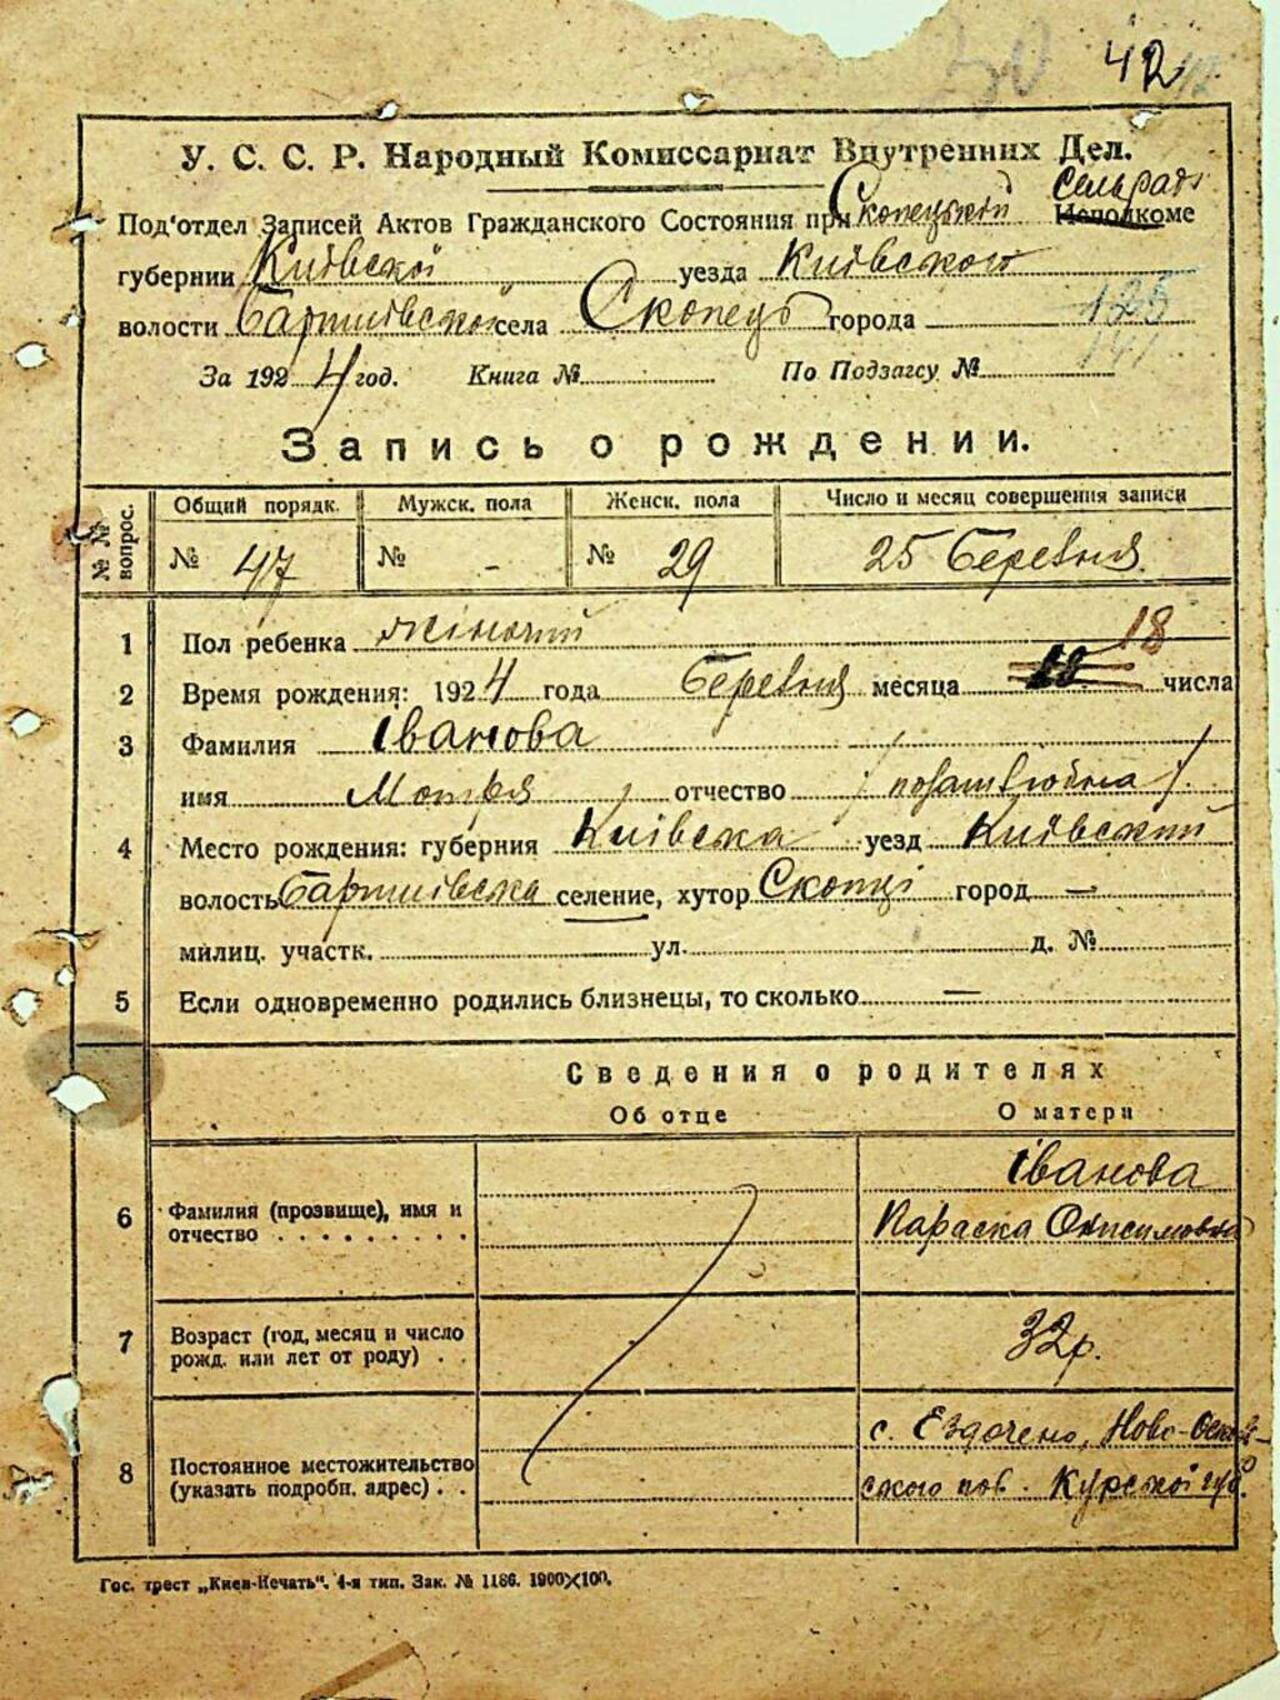 42
У. С. С. Р. Народный Комиссариат Внутренних Дел.
Сельради
Под'отдел Записей Актов Гражданского Состояния при Скопецькій Исполкоме
губернии Київскої уезда Київського
волости Баришівскої села Скопець города 125
За 1924 год. Книга № По Подзагсу № 141
Запись о рождении.
№ № вопрос. Общий порядк. Мужск. пола Женск. пола Число и месяц совершения записи
№ 47 № - № 29 25 Березня.
1 Пол ребенка жіночий
18
2 Время рождения: 1924 года Березня месяца числа
3 Фамилия Іванова
имя Мотря отчество / позашлюбна /.
4 Место рождения: губерния Київска уезд Київский
волость Баришівска селение, хутор Скопці город —
милиц. участк. ул. д. №
5 Если одновременно родились близнецы, то сколько —
Сведения о родителях
Об отце О матери
Іванова
6 Фамилия (прозвище), имя и отчество . . . . . . . . . Параска Онисимовна
7 Возраст (год, месяц и число рожд. или лет от роду) . . 32 р.
с. Ездочено, Ново-Оскол-
8 Постоянное местожительство (указать подробн. адрес) . . ского пов. Курскої губ.
Гос. трест „Киев-Печать". 4-я тип. Зак. № 1186. 1900×100.